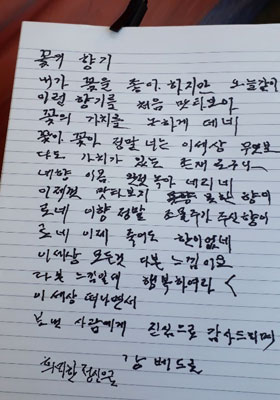 꽃의 향기
내가 꽃을 좋아 하지만 오늘같이
이런 향기를 처음 맛타보아
꽃의 가치를 하게 데네
꽃아 꽃아 정말 너는 이세상 무엇보
다도 가치가 있는 존재로구나
내향 이몸 녹아 내리네
이제껏 맛타보기 못한 향이
로네 이향 정말 조물주가 주신향이
로네 이제 죽어도 한이없네
이세상 모든것 다본 느낌이요
다본 느낌일세 행복하여라
이세상 떠나면서
사람에게 진심으로 감사드리며
희미한 정신으로 강 베드로